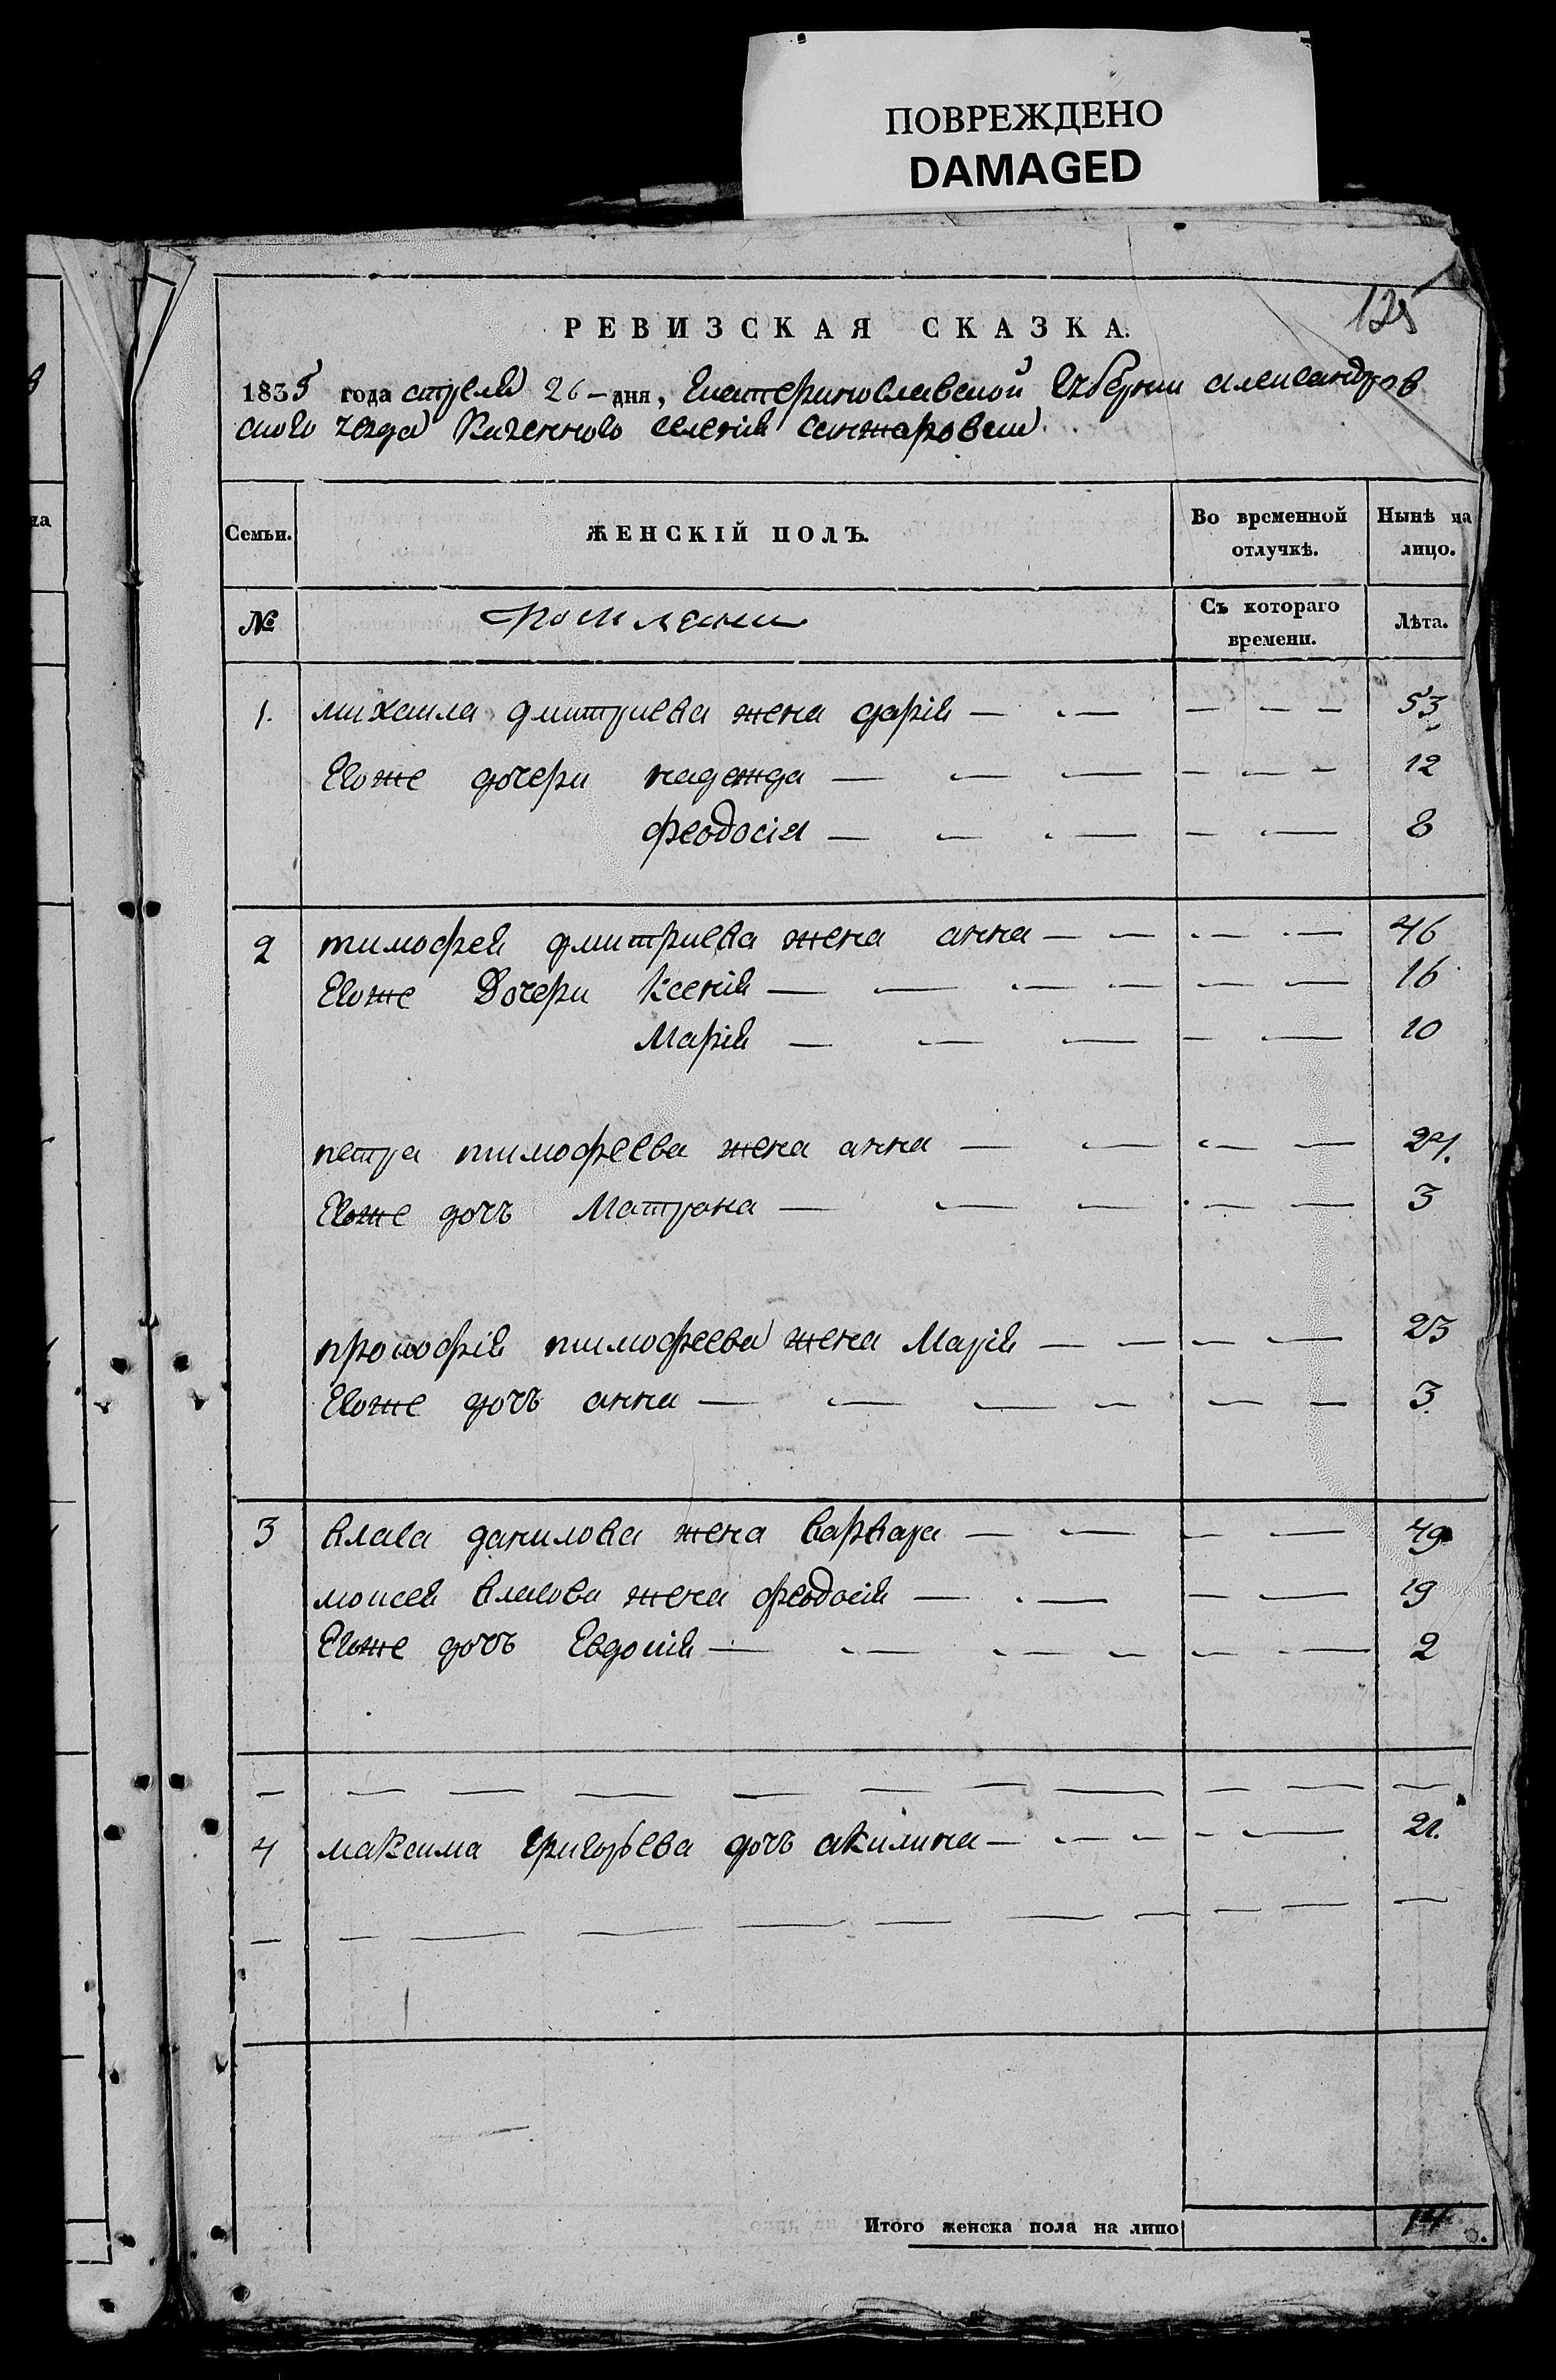 ПОВРЕЖДЕНО
DAMAGED
125
РЕВИЗСКАЯ СКАЗКА.
1835 года апреля 26 – дня, Екатеринославской Губернии александров
ского уезда Казенного селения санжаровки
Семьи. ЖЕНСКІЙ ПОЛЪ. Во временной отлучкѣ. Нынѣ на лицо.
№ Съ котораго времени. Лѣта.
1. михаила дмитриева жена дарія 53
Егоже дочери надежда 12
феодосіа 8
2 тимофея дмитриева жена анна 46
Егоже Дочери Ксенія 16
Марія 10
петра тимофеева жена анна 24.
Егоже дочъ Матрона 3
прокофія тимофеева жена Марія 23
Егоже дочъ анна 3
3 власа данилова жена варвара 49
моисея власова жена феодосія 19
Егоже дочъ Евдокія 2
4 максима григорьева дочъ акилина 21.
Итого женска пола на лицо 14
на